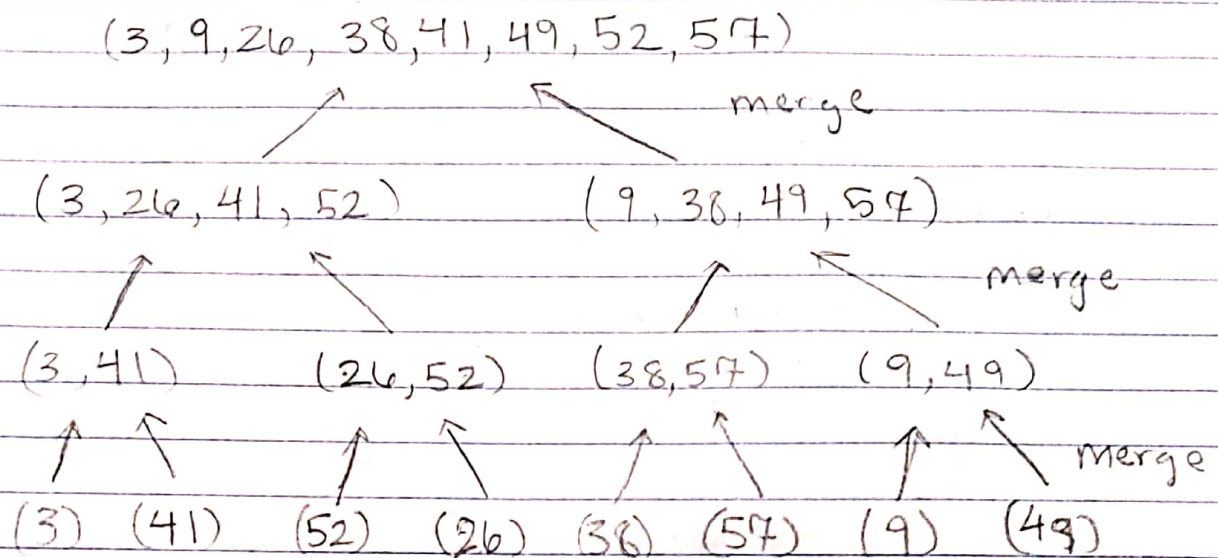 (3, 9, 26, 38, 41, 49, 52, 57)
merge
(3, 26, 41, 52) (9, 38, 49, 57)
merge
(3, 41) (26, 52) (38, 57) (9, 49)
merge
(3) (41) (52) (26) (38) (57) (9) (49)